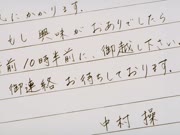 心にかかります。
もし興味がおありでしたら
前10時半前に、御越し下さい。
御連絡お待ちしております。
中村 操